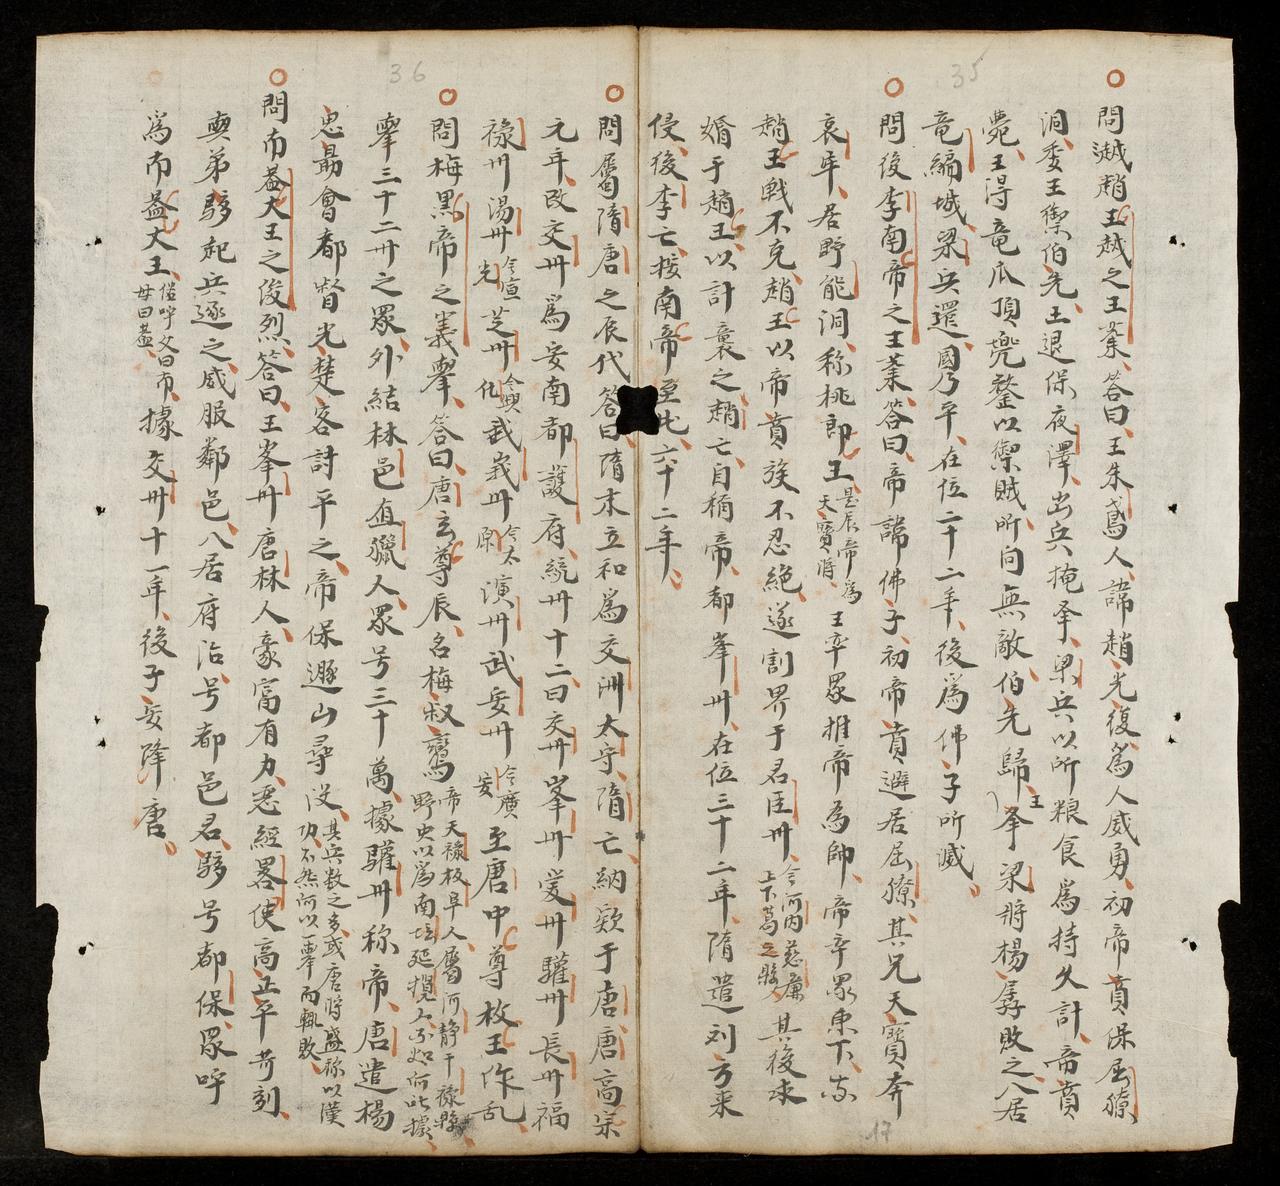 35
問滅趙王越之王業答曰王朱鳶人諱趙光復為人威勇初帝賁保屈獠
洞委王禦伯先王退保夜澤出兵掩夆梁兵以所粮食為持久計帝賁
薨王淂竜瓜頂兜鍪以禦賊所向無敵伯先歸王夆梁將楊孱敗之入居
竜編城梁兵還國乃平在位二十二年後為佛子所滅
問後李南帝之王業答曰帝諱佛子初帝賁避居屈獠其兄天寶奔
哀牢居野能洞称桃郎王是辰帝為天寶將王卒眾推帝為帥帝率眾東下与
趙王戰不克趙王以帝賁族不忍絶遂割界于君臣州今河內慈廉上下葛之縣其後求
婚于趙王以計襲之趙亡自稱帝都峯州在位三十二年隋遣刘方來
侵後李亡按南帝至此六十二年
17
36
問屬隋唐之辰代答曰隋末立和為交洲太守隋亡納欵于唐唐高宗
元年改交州為安南都護府統州十二曰交州峯州愛州驩州長州福
祿州湯州今宣光芝州今興化武峩州今太原演州武安州今廣安至唐中尊枚王作乱
問梅黑帝之義舉答曰唐玄尊辰名梅叔鸞帝天祿板阜人屬河静干祿縣野史以為南壇延攬人不如何此據
舉三十二州之眾外結林邑真臘人眾号三十萬據驩州称帝唐遣楊
思勗會都督光楚客討平之帝保遯山尋没其兵数之多或唐將盛称以僕功不然何以一舉而輒敗
問布盖大王之俊烈答曰王峯州唐林人豪富有力惡經畧使高正平苛刻
與弟駭起兵逐之威服鄰邑入居府治号都邑君駭号都保眾呼
為布盖大王俗呼父曰布母曰盖據交州十一年後子安降唐